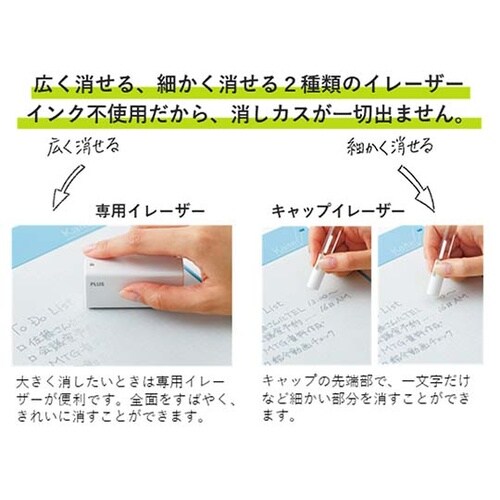 広く消せる、細かく消せる2種類のイレーザー
インク不使用だから、消しカスが一切出ません。
広く消せる
細かく消せる
専用イレーザー
キャップイレーザー
PLUS
To Do List
大きく消したいときは専用イレー
ザーが便利です。全面をすばやく、
きれいに消すことができます。
キャップの先端部で、一文字だけ
など細かい部分を消すことができ
ます。